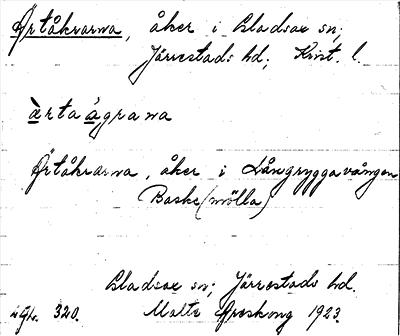 Örtåkrarna, åker i Bladsax sn;
Järrestads hd; Krist. l.
àrta ágrana
Örtåkrarna, åker i Långryggavången
Baske(mölla)
Bladsax sn; Järrestads hd.
320. Malte Areskoug 1923.